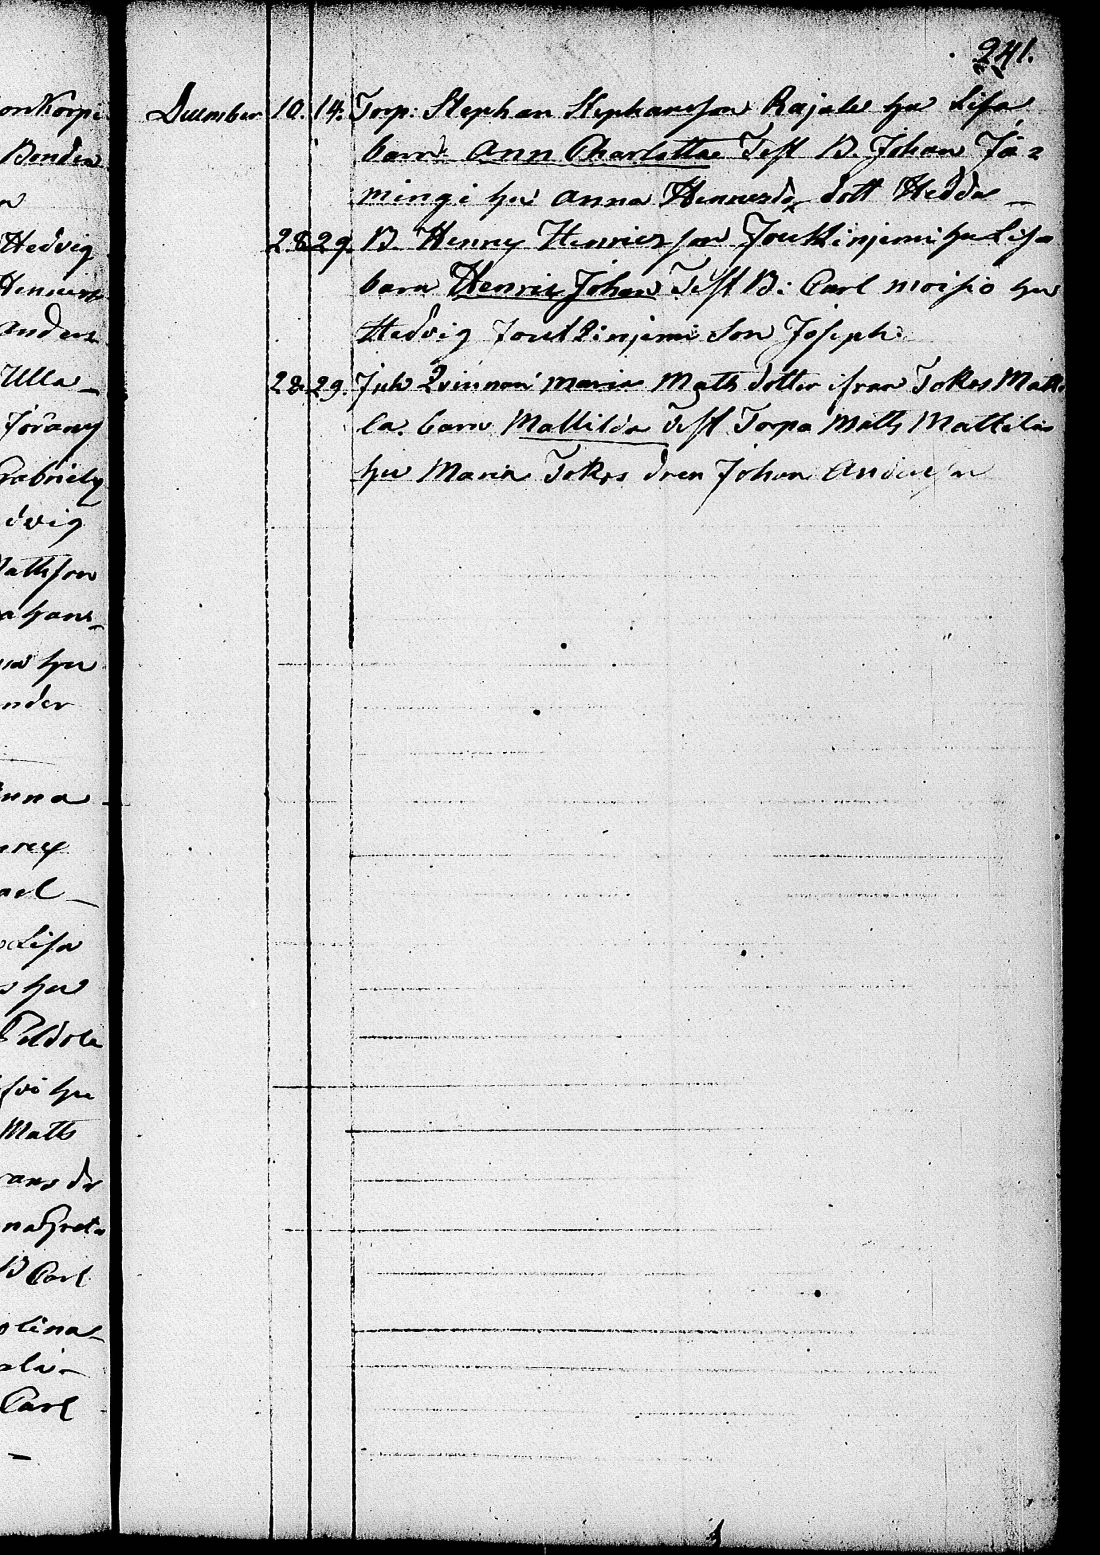 241.
onkorpi
Bonden
a
Hedvig
Henrics
Anders
Ulla
Jörany
Gabriels
dvig
Mathson
a hans
hu
nder
nna
ael
Lisa
hu
Peldola
hu
Matts
na Greta
B Carl
olina
Carl
December 10. 14. Torp: Stephan Stephansson Rajala hu Lisa
barn: Ann Charlotta Test B. Johan Jä=
mingi hu Anna Henricsd. dott Hedda
28. 29. B. Henric Henricsson Joukkinjemi hu Lisa
barn Henric Johan Test B: Carl moisio hu
Hedvig Joukkinjemi Son Joseph:
28. 29. Inh Qvinnan Maria Maths dotter ifrån Tokos Matti
la. barn Mathilda Test Torpa Matts Mattila
hu Maria Tokos dren Johan Andersson